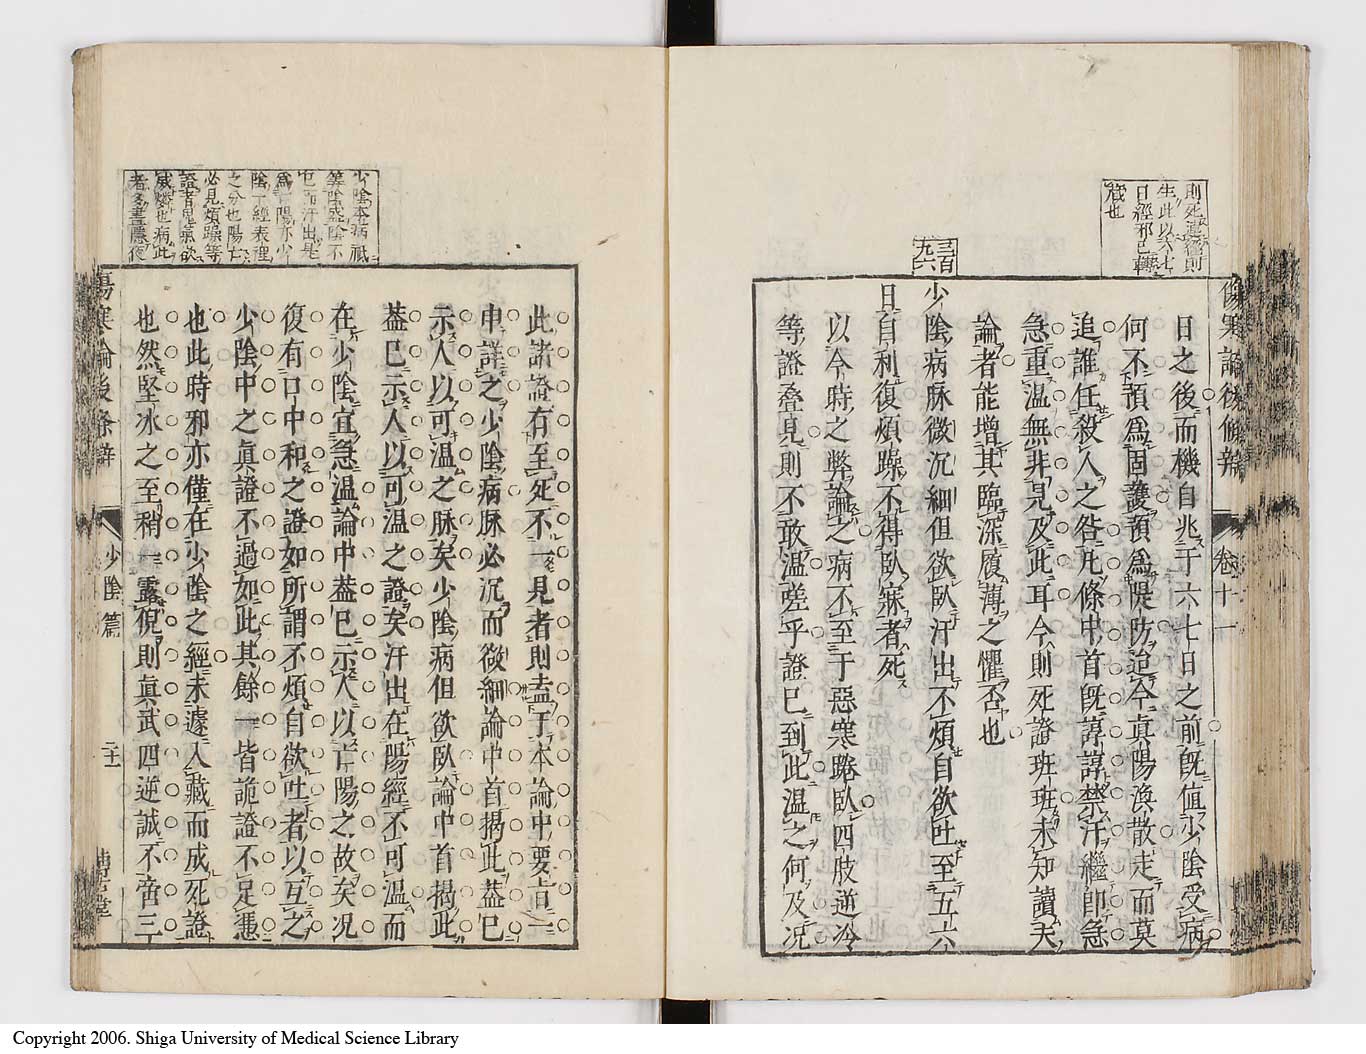 傷寒論後條辨
卷十一
則死
生此以六七
日經邪已轉
藏也
日之後而機自兆于六七日之前既值少陰受病
何不預爲固護預爲隄防迨今眞陽渙散走而莫
追誰任殺人之咎凡條中首既諄諄禁汗繼卽急
急重溫無非見及此耳今則死證班班未知讀夫
論者能增其臨深履薄之懼否也
三百
九六
少陰病脉微沉細但欲臥汗出不煩自欲吐至五六
日自利復煩躁不得臥寐者死
以今時之弊論之病不至于惡寒踡臥四肢逆冷
等證疊見則不敢溫嗟乎證已到此溫之何及况
少陰本病祗
算陰盛陰不
已而汗出是
爲亡陽亦少
陰一經表裡
之分也陽亡
必見煩躁等
證者鬼氣欲
威燐也病此
者多晝隱夜
此諸證有至死不一見者則盍于本論中要旨一一
申詳之少陰病脉必沉而微細論中首揭此蓋已
示人以可溫之脉矣少陰病但欲臥論中首揭此
蓋已示人以可溫之證矣汗出在陽經不可溫而
在少陰宜急溫論中蓋已示人以亡陽之故矣况
復有口中和之證如所謂不煩自欲吐者以互之
少陰中之眞證不過如此其餘一皆詭證不足憑
也此時邪亦僅在少陰之經未遽入藏而成死證
也然堅冰之至稍一露倪則眞武四逆誠不啻三
傷寒論後條辨
少陰篇
Copyright 2006. Shiga University of Medical Science Library